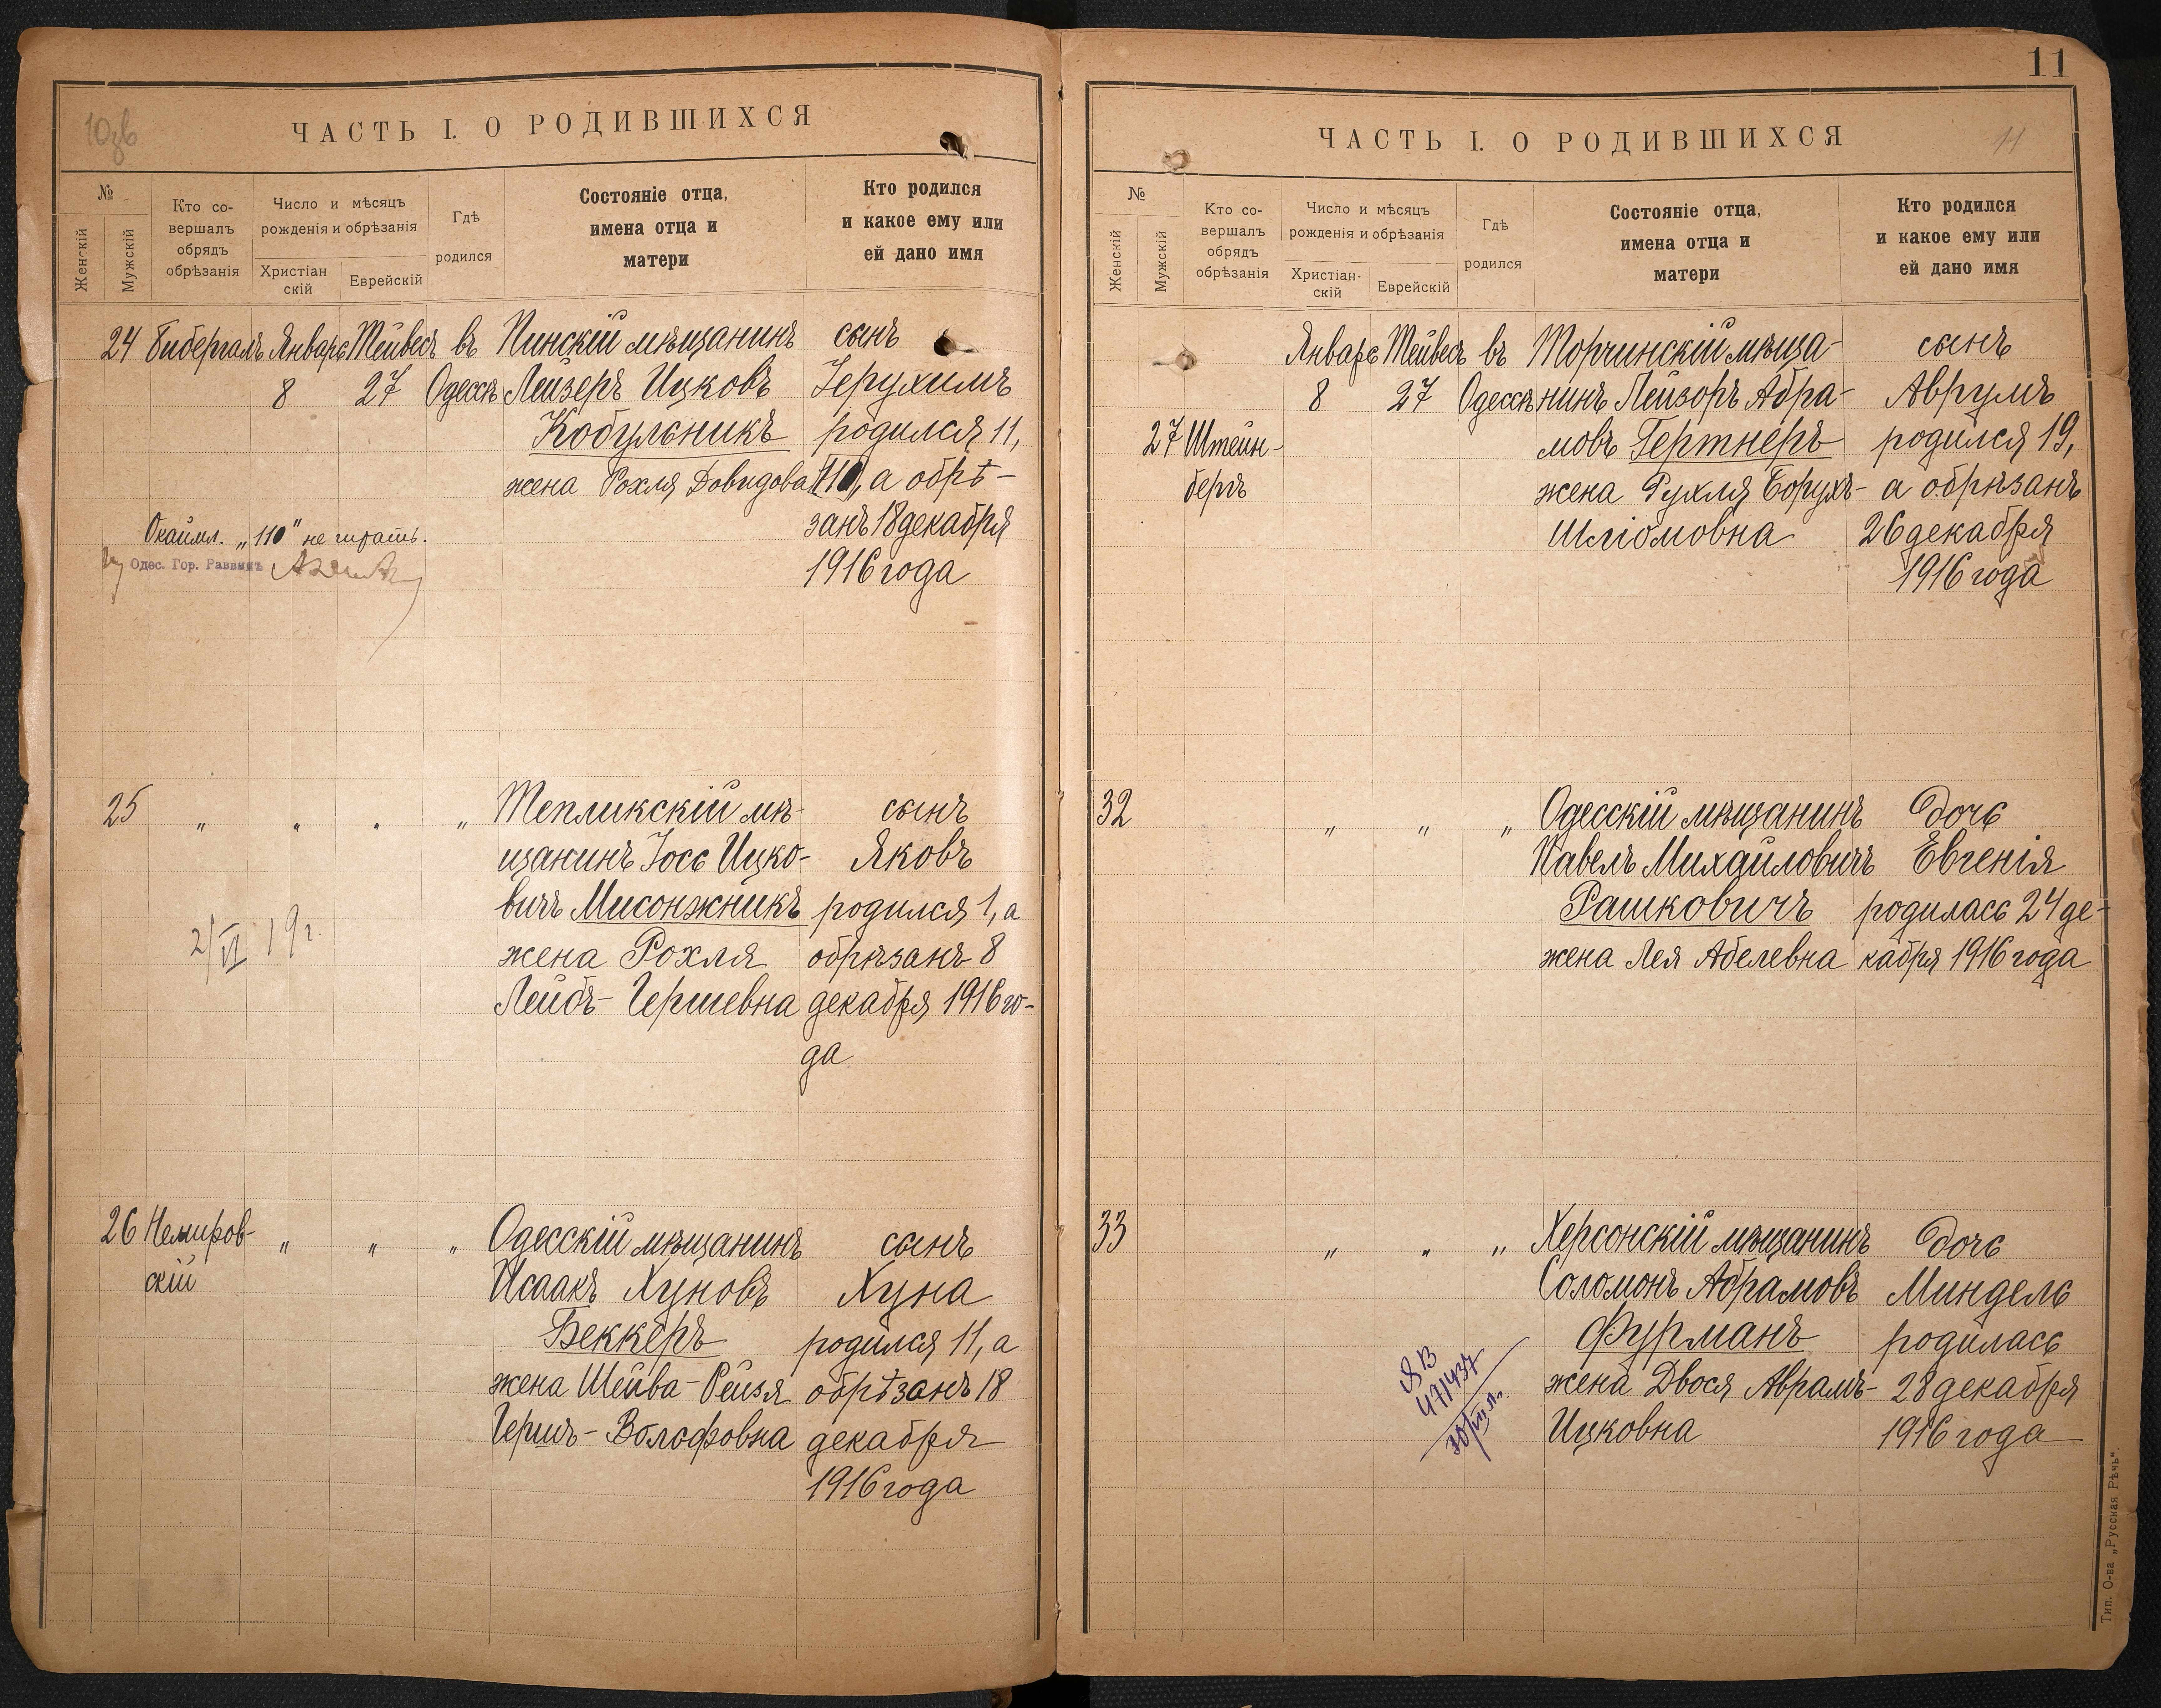 10об
ЧАСТЬ I. О РОДИВШИХСЯ
№
Женскій
Мужскій
Кто со-
вершалъ
обрядъ
обрѣзанія
Число и мѣсяцъ
рожденія и обрѣзанія
Христіан
скій
Еврейскій
Гдѣ
родился
Состояніе отца,
имена отца и
матери
Кто родился
и какое ему или
ей дано имя
24 Бибергалъ Январь Тейвесъ въ Пинскій мѣщанинъ сынъ
8 27 Одессѣ Лейзеръ Ицковъ Іерухимъ
Кобульникъ родился 11,
жена Рохля Довидова 110, а обрѣ-
занъ 18 декабря
1916 года
"110" не читать.
Одес. Гор. Раввинъ
25 " " " " Тепликскій мѣ- сынъ
щанинъ Іось Ицко- Яковъ
вичъ Мисонжникъ родился 1, а
жена Рохля обрѣзанъ 8
Лейбъ-Гершевна декабря 1916 го-
да
2/VI 19 г.
26 Немиров- " " " Одесскій мѣщанинъ сынъ
скій Исаакъ Хуновъ Хуна
Беккеръ родился 11, а
жена Шейва-Рейзя обрѣзанъ 18
Гершъ-Волофовна декабря
1916 года
11
ЧАСТЬ I. О РОДИВШИХСЯ
11
№
Женскій
Мужскій
Кто со-
вершалъ
обрядъ
обрѣзанія
Число и мѣсяцъ
рожденія и обрѣзанія
Христіан-
скій
Еврейскій
Гдѣ
родился
Состояніе отца,
имена отца и
матери
Кто родился
и какое ему или
ей дано имя
Январь Тейвесъ въ Торчинскій мѣща- сынъ
8 27 Одессѣ нинъ Лейзоръ Абра- Аврумъ
27 Штейн- мовъ Гертнеръ родился 19,
бергъ жена Рухля Борухъ- а обрѣзанъ
Шліомовна 26 декабря
1916 года
32 " " " Одесскій мѣщанинъ Дочь
Павелъ Михайловичъ Евгенія
Рашковичъ родилась 24 де-
жена Лея Абелевна кабря 1916 года
33 " " " Херсонскій мѣщанинъ Дочь
Соломонъ Абрамовъ Миндель
Фурманъ родилась
жена Двося Аврамъ- 28 декабря
Ицковна 1916 года
ЯВ
471437
Тип. О-ва „Русская Рѣчь".